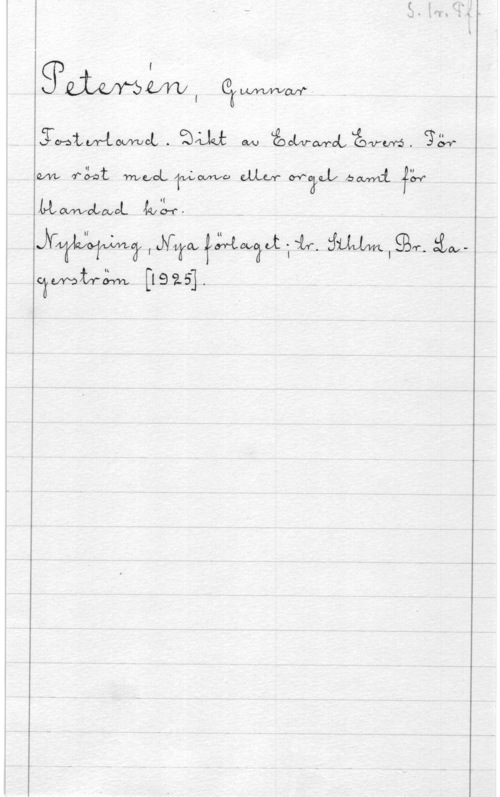 S. tr. Pf.
Petersén, Gunnar
Fosterland. Dikt av Edvard Evers. För
en röst med piano eller orgel samt för
blandad kör.
Nyköping, Nya förlaget; tr. Sthlm, Br. La-
gerström [1925].